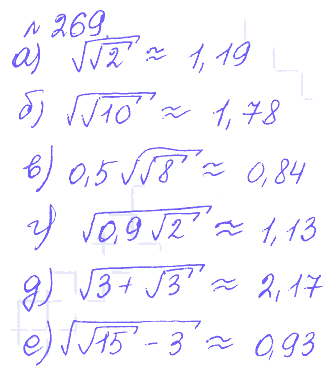 № 269.
а) √√2 ≈ 1,19
б) √√10 ≈ 1,78
в) 0,5√√8 ≈ 0,84
г) √0,9√2 ≈ 1,13
д) √3+√3 ≈ 2,17
е) √√15 - 3 ≈ 0,93